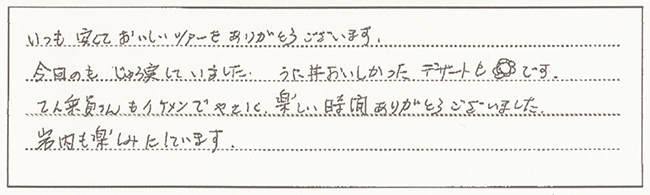 いつも安くておいしいツアーをありがとうございます。
今回のもじゅう実していました。うに丼おいしかった デザートも◎です。
てん乗員さんもイケメンでやさしく、楽しい時間ありがとうございました。
岩内も楽しみにしています。